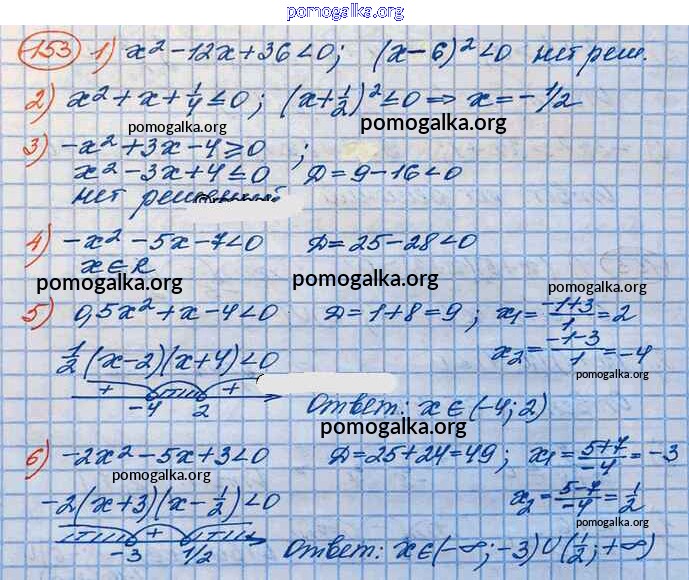 pomogalka.org
153 1) x² - 12x + 36 < 0; (x - 6)² < 0 нет реш.
2) x² + x + 1/4 ≤ 0; (x + 1/2)² ≤ 0 => x = -1/2
pomogalka.org pomogalka.org
3) -x² + 3x - 4 ≥ 0 ;
x² - 3x + 4 ≤ 0 D = 9 - 16 < 0
нет решений
4) -x² - 5x - 7 < 0 D = 25 - 28 < 0
x ∈ R
pomogalka.org pomogalka.org pomogalka.org
5) 0,5x² + x - 4 < 0 D = 1 + 8 = 9 ; x₁ = (-1+3)/1 = 2
1/2 (x - 2)(x + 4) < 0 x₂ = (-1-3)/1 = -4
+ + pomogalka.org
-4 2 Ответ: x ∈ (-4; 2)
pomogalka.org
6) -2x² - 5x + 3 < 0 D = 25 + 24 = 49 ; x₁ = (5+7)/-4 = -3
pomogalka.org pomogalka.org
-2(x + 3)(x - 1/2) < 0 x₂ = (5-7)/-4 = 1/2
+ pomogalka.org
-3 1/2 Ответ: x ∈ (-∞; -3) ∪ (1/2; +∞)
pomogalka.org